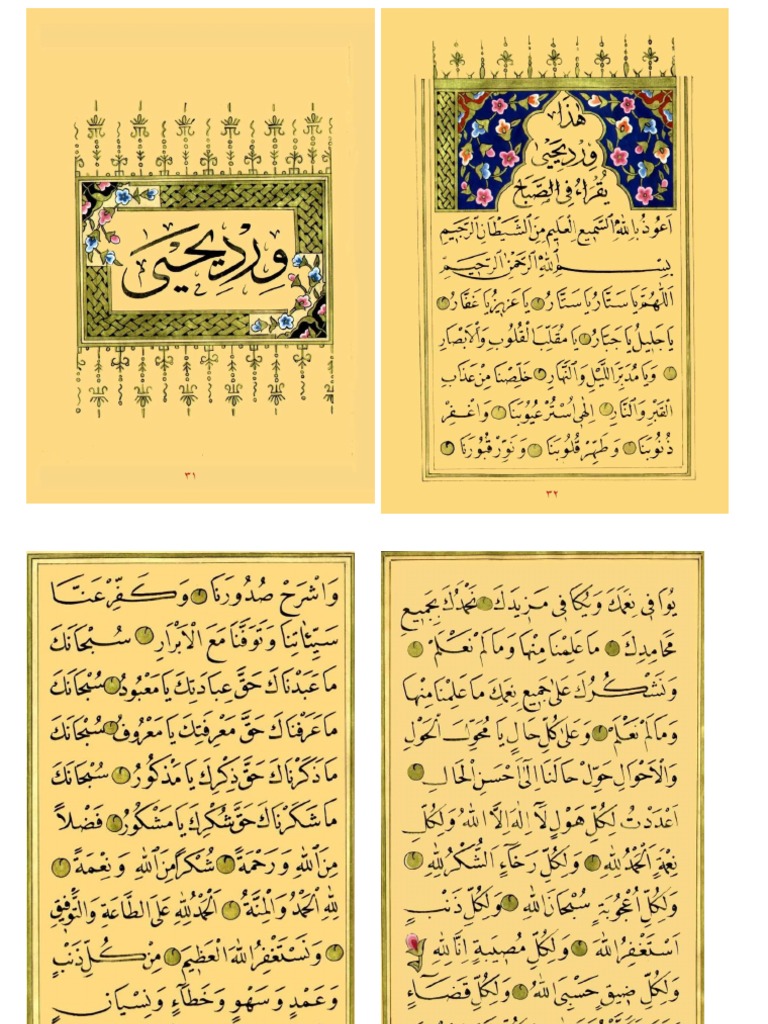 وِرْدِ يَحْيَى
٣١
هٰذَا
وِرْدِ يَحْيٰى
يُقْرَاءُ فِى الصَّبَاحِ
اَعُوذُ بِاللّٰهِ السَّمِيعِ الْعَلِيمِ مِنَ الشَّيْطَانِ الرَّجِيمِ
بِسْمِ اللّٰهِ الرَّحْمٰنِ الرَّحِيمِ
اَللّٰهُمَّ يَا سَتَّارُ يَا سَتَّارُ يَا عَزِيزُ يَا غَفَّارُ
يَا جَلِيلُ يَا جَبَّارُ يَا مُقَلِّبَ الْقُلُوبِ وَالْاَبْصَارِ
وَيَا مُدَبِّرَ اللَّيْلِ وَالنَّهَارِ خَلِّصْنَا مِنْ عَذَابِ
الْقَبْرِ وَالنَّارِ اِلٰهِى اسْتُرْ عُيُوبَنَا وَاغْفِرْ
ذُنُوبَنَا وَطَهِّرْ قُلُوبَنَا وَنَوِّرْ قُبُورَنَا
٣٢
وَاشْرَحْ صُدُورَنَا وَكَفِّرْ عَنَّا
سَيِّئَاتِنَا وَتَوَفَّنَا مَعَ الْاَبْرَارِ سُبْحَانَكَ
مَا عَبَدْنَاكَ حَقَّ عِبَادَتِكَ يَا مَعْبُودُ سُبْحَانَكَ
مَا عَرَفْنَاكَ حَقَّ مَعْرِفَتِكَ يَا مَعْرُوفُ سُبْحَانَكَ
مَا ذَكَرْنَاكَ حَقَّ ذِكْرِكَ يَا مَذْكُورُ سُبْحَانَكَ
مَا شَكَرْنَاكَ حَقَّ شُكْرِكَ يَا مَشْكُورُ فَضْلًا
مِنَ اللّٰهِ وَرَحْمَةً شُكْرًا مِنَ اللّٰهِ وَنِعْمَةً
لِلّٰهِ الْحَمْدُ وَالْمِنَّةُ اَلْحَمْدُ لِلّٰهِ عَلَى الطَّاعَةِ وَالتَّوْفِيقِ
وَنَسْتَغْفِرُ اللّٰهَ الْعَظِيمَ مِنْ كُلِّ ذَنْبٍ
وَعَمْدٍ وَسَهْوٍ وَخَطَاءٍ وَنِسْيَانٍ
يُوَافِى نِعَمَكَ وَيُكَافِى مَزِيدَكَ نَحْمَدُكَ بِجَمِيعِ
مَحَامِدِكَ مَا عَلِمْنَا مِنْهَا وَمَا لَمْ نَعْلَمْ
وَنَشْكُرُكَ عَلٰى جَمِيعِ نِعَمِكَ مَا عَلِمْنَا مِنْهَا
وَمَا لَمْ نَعْلَمْ وَعَلٰى كُلِّ حَالٍ يَا مُحَوِّلَ الْحَوْلِ
وَالْاَحْوَالِ حَوِّلْ حَالَنَا اِلٰى اَحْسَنِ الْحَالِ
اَعْدَدْتُ لِكُلِّ هَوْلٍ لَا اِلٰهَ اِلَّا اللّٰهُ وَلِكُلِّ
نِعْمَةٍ اَلْحَمْدُ لِلّٰهِ وَلِكُلِّ رَخَاءٍ اَلشُّكْرُ لِلّٰهِ
وَلِكُلِّ اُعْجُوبَةٍ سُبْحَانَ اللّٰهِ وَلِكُلِّ ذَنْبٍ
اَسْتَغْفِرُ اللّٰهَ وَلِكُلِّ مُصِيبَةٍ اِنَّا لِلّٰهِ
وَلِكُلِّ ضِيقٍ حَسْبِىَ اللّٰهُ وَلِكُلِّ قَضَاءٍ